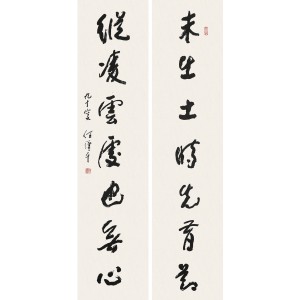 未出土時先有節
縱凌雲處也無心
九十叟